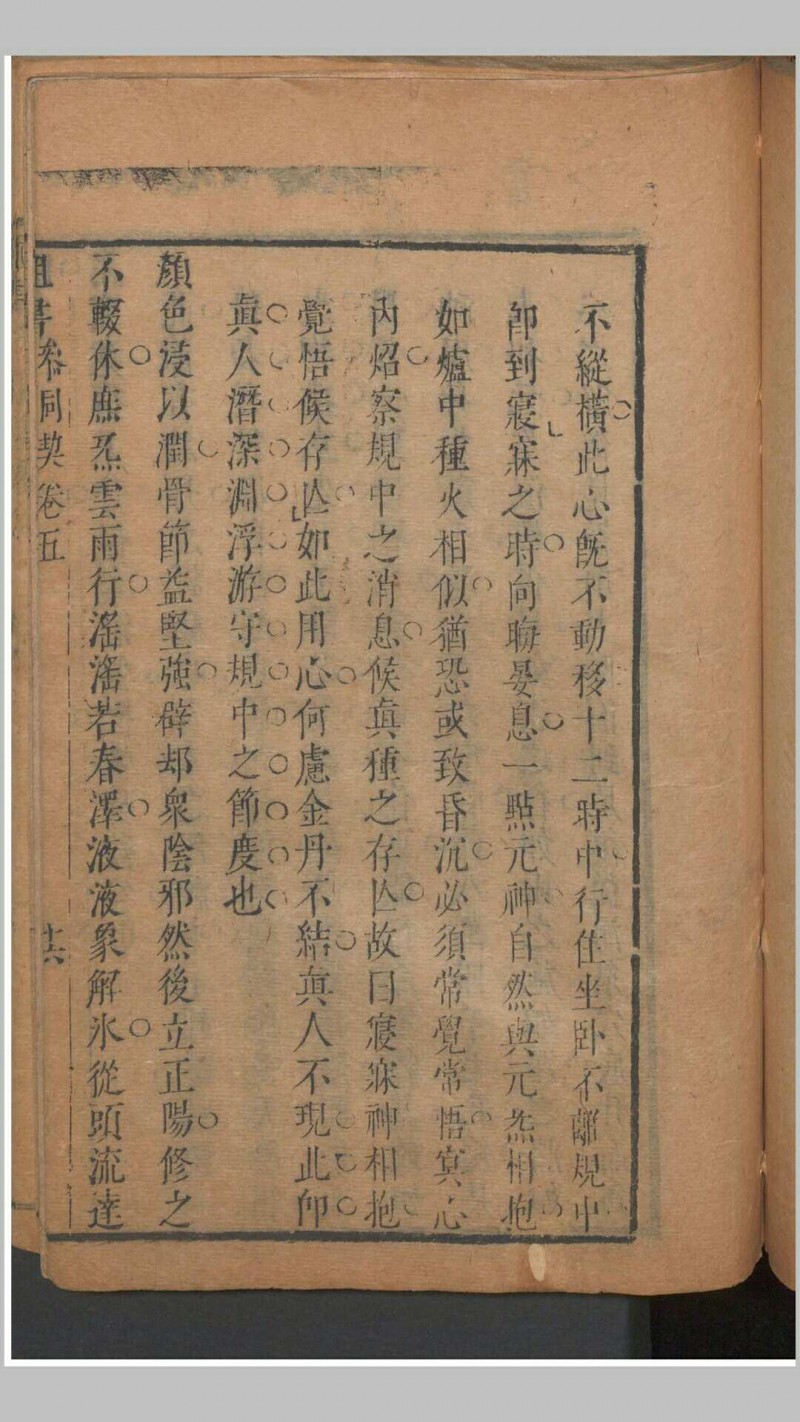 不縱橫此心旣不動移十二時中行住坐卧不離規中
卽到寢寐之時向晦晏息一㸃元神自然與元炁相抱
如爐中種火相似猶恐或致昏沉必須常覺常悟冥心
內炤察規中之消息候眞種之存亾故曰寢寐神相抱
覺悟候存亾如此用心何慮金丹不結眞人不現此卽
眞人潛深淵浮游守規中之節度也
顏色浸以潤骨節益堅強辟却衆陰邪然後立正陽修之
不輟休庶炁雲雨行滛滛若春澤液液象解氷從頭流達
參同契卷五 十六